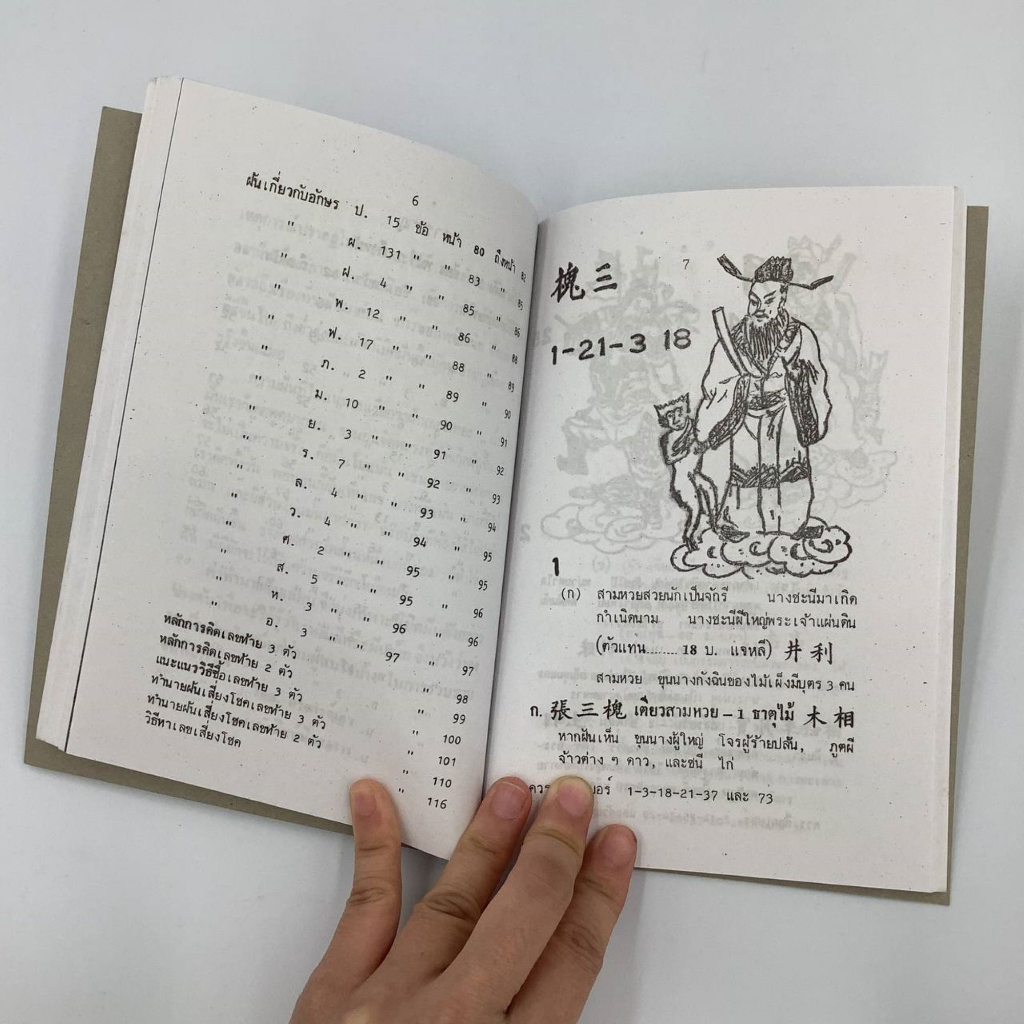 6
ฝันเกี่ยวกับอักษร ป. 15 ข้อ หน้า 80 ถึงหน้า 82
" ผ. 131 " " 83 " 85
" ฝ. 4 " " 85 " 86
" พ. 12 " " 86 " 88
" ฟ. 17 " " 88 " 89
" ภ. 2 " " 89 " 90
" ม. 10 " " 90 " 91
" ย. 3 " " 91 " 92
" ร. 7 " " 92 " 93
" ล. 4 " " 93 " 94
" ว. 4 " " 94 " 95
" ศ. 2 " " 95 " 95
" ส. 5 " " 95 " 96
" ห. 3 " " 96 " 96
" อ. 3 " " 97 " 97
หลักการคิดเลขท้าย 3 ตัว " 98
หลักการคิดเลขท้าย 2 ตัว " 99
แนะแนววิธีซื้อเลขท้าย 3 ตัว " 100
ทำนายฝันเสี่ยงโชคเลขท้าย 3 ตัว " 101
ทำนายฝันเสี่ยงโชคเลขท้าย 2 ตัว " 110
วิธีหาเลขเสี่ยงโชค " 116
7
槐三
1-21-3 18
1
(ก) สามหวยสวยนักเป็นจักรี นางชะนีมาเกิด
กำเนิดนาม นางชะนีผีใหญ่พระเจ้าแผ่นดิน
(ตัวแทน........ 18 บ. แจหลี) 井利
สามหวย ขุนนางกังฉินของไม้เผ็งมีบุตร 3 คน
ก. 張三槐 เตียวสามหวย - 1 ธาตุไม้ 木相
หากฝันเห็น ขุนนางผู้ใหญ่ โจรผู้ร้ายปล้น, ภูตผี
จ้าวต่าง ๆ ดาว, และชนี ไก่
1-3-18-21-37 และ 73